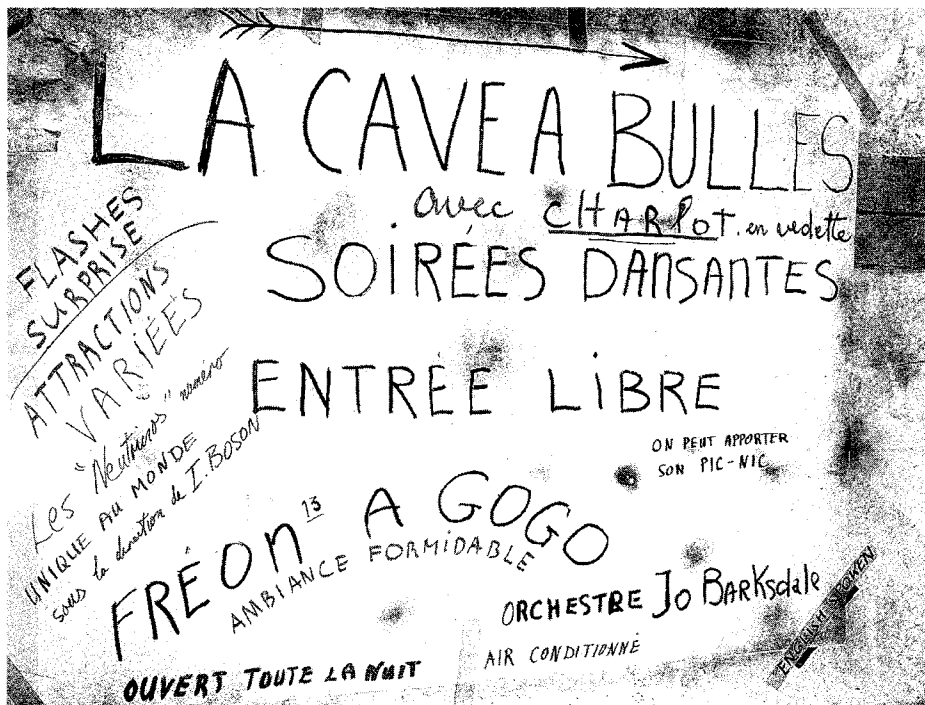 LA CAVE A BULLES
avec CHARLOT. en vedette
SOIRÉES DANSANTES
FLASHES
SURPRISE
ATTRACTIONS
VARIÉES
Les "Neutrinos" numéro
UNIQUE AU MONDE
sous la direction de I. BOSON
ENTRÉE LIBRE
ON PEUT APPORTER
SON PIC-NIC
FRÉON 13 A GOGO
AMBIANCE FORMIDABLE
ORCHESTRE JO BARKSdale
AIR CONDITIONNÉ
OUVERT TOUTE LA NUIT
ENGLISH SPOKEN